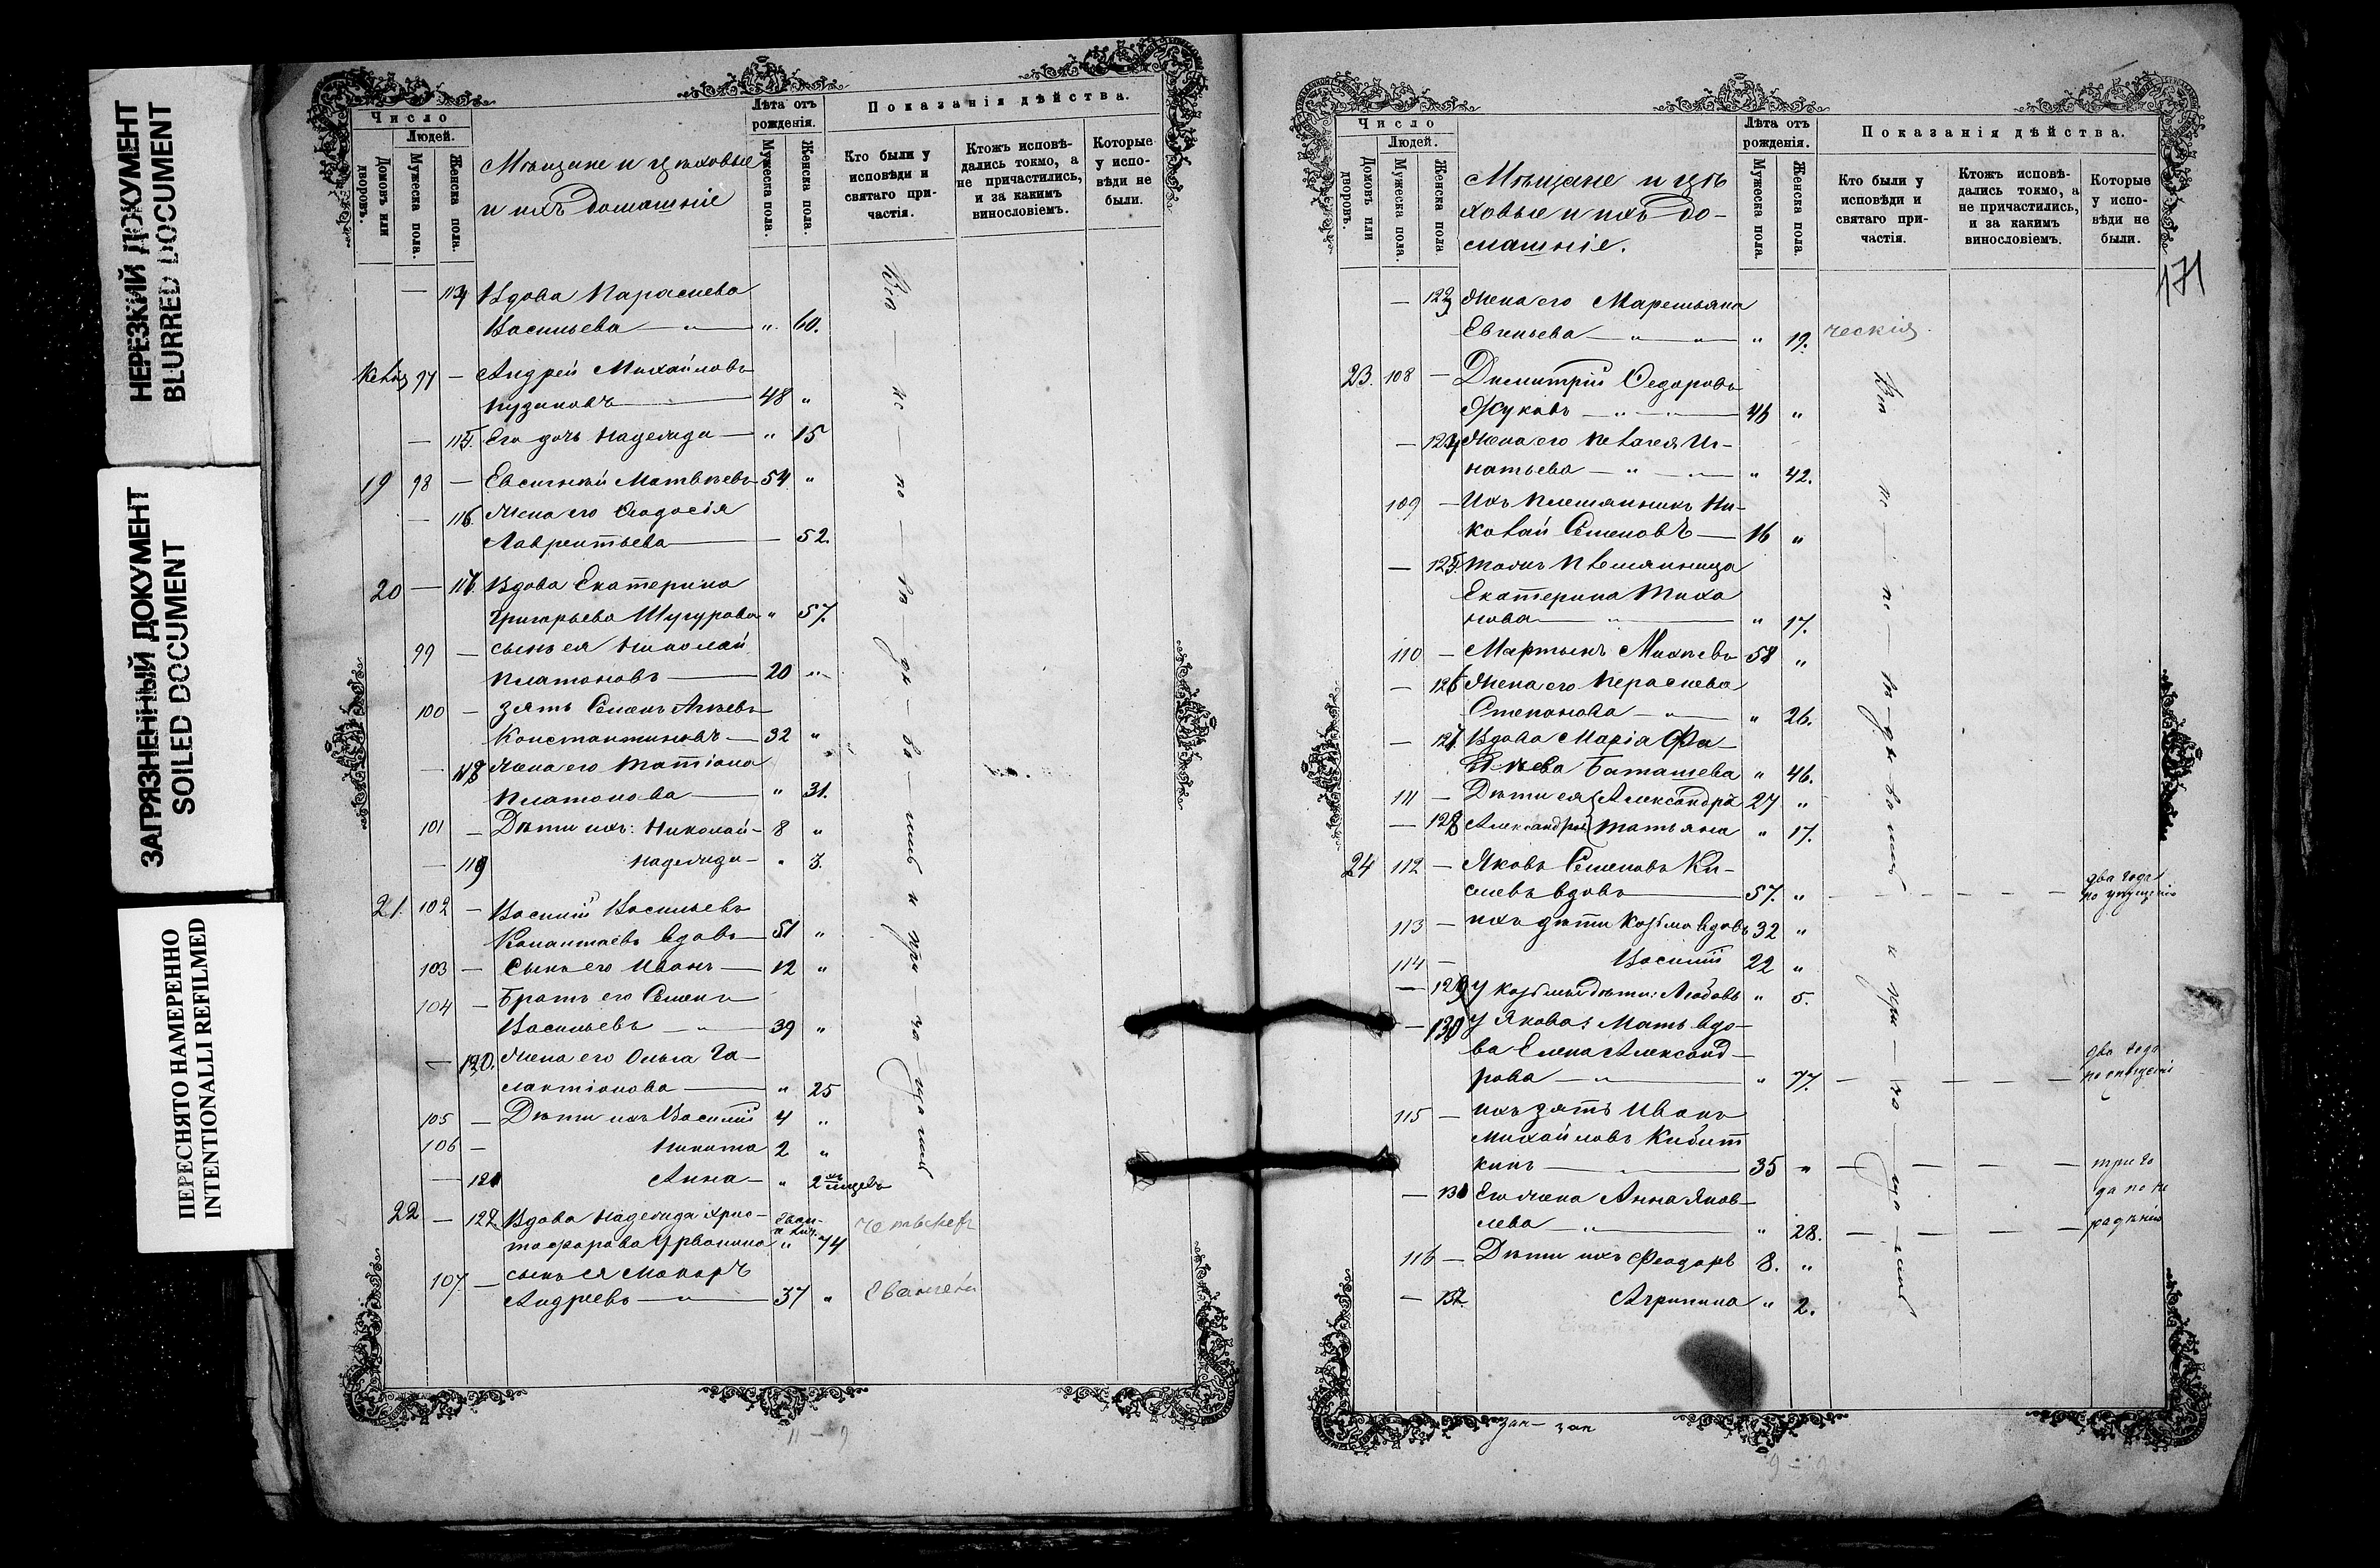 НЕРЕЗКИЙ ДОКУМЕНТ
BLURRED DOCUMENT
ЗАГРЯЗНЕННЫЙ ДОКУМЕНТ
SOILED DOCUMENT
ПЕРЕСНЯТО НАМЕРЕННО
INTENTIONALLI REFILMED
Число
Людей.
Домовъ или дворовъ.
Мужеска пола.
Женска пола.
Мѣщане и цѣховые
и ихъ домашніе
Лѣта отъ рожденія.
Мужеска пола.
Женска пола.
Показанія дѣйства.
Кто были у исповѣди и святаго причастія.
Ктожъ исповѣдались токмо, а не причастились, и за какимъ винословіемъ.
Которые у исповѣди не были.
— 114 Вдова Параскева
Васильева — " 60.
97 — Андрей Михайловъ
48 "
— 115. Его дочь Надежда — " 15
19 98 — Евсигній Матвѣевъ 54 "
— 116. Жена его Феодосія
Лаврентьева — 52.
20 — 117. Вдова Екатерина
Григорьева Шугурова " 57.
99 — сынъ ея Николай
Платоновъ — 20 "
100 — зять Семенъ
Константиновъ — 32 "
— 118 Жена его Татіана
Платонова — " 31.
101 — Дѣти ихъ: Николай — 8 "
— 119 Надежда — " 3.
21. 102 — Василій Васильевъ
вдовъ — 51 "
103 — Сынъ его Иванъ — 12 "
104 — Братъ его Семенъ
Васильевъ — " — 39 "
— 120. Жена его Ольга Га-
лактіонова — " 25
105 — Дѣти ихъ Василій 4 "
106 — Никита 2 "
— 121 Анна — " 2 мѣсяцевъ
22 — 122 Вдова Надежда Хрис-
тофорова " 74
107. — сынъ ея Макаръ
Андреевъ — " — 37 "
171
Число
Людей.
Домовъ или дворовъ.
Мужеска пола.
Женска пола.
Мѣщане и цѣ
ховые и ихъ до-
машніе.
Лѣта отъ рожденія.
Мужеска пола.
Женска пола.
Показанія дѣйства.
Кто были у исповѣди и святаго причастія.
Ктожъ исповѣдались токмо, а не причастились, и за какимъ винословіемъ.
Которые у исповѣди не были.
— 123 Жена его Маремьяна
Евгеньева — " — " — " 19. ческія
23. 108 — Димитрій Федоровъ
Жуковъ — " — " — 46 "
— 124 Жена его Пелагея Иг-
натьева — " — " — " 42.
109 — Ихъ племянникъ Ни-
колай Семеновъ — 16 "
— 125. племянница
Екатерина Тихо
нова — " — " 17.
110 — Мартынъ Михѣевъ 58 "
— 126 Жена его Пераскева
Степанова — " — " 26.
— 127. Вдова Марія Фа-
дѣева Баташева " 46.
111 — Дѣти ея Александръ 27 "
— 128 Татьяна " 17.
24 112 — Яковъ Семеновъ Ки-
селевъ вдовъ — 57. "
два года
113 — ихъ дѣти Козьма вдовъ 32 "
114 — Василій 22 "
— 129 У Козьмы дѣти: Любовь " 5.
— 130 У Якова: Мать вдо-
ва Елена Александ-
рова — " — " 77.
два года
115 — ихъ зять Иванъ
Михайловъ Кибит
кинъ — " — 35 "
— 131 Его жена Анна Яков-
лева — " — " 28.
три го
да по не
радѣнію
116 — Дѣти ихъ Феодоръ 8. "
— 132. Агрипина " 2.